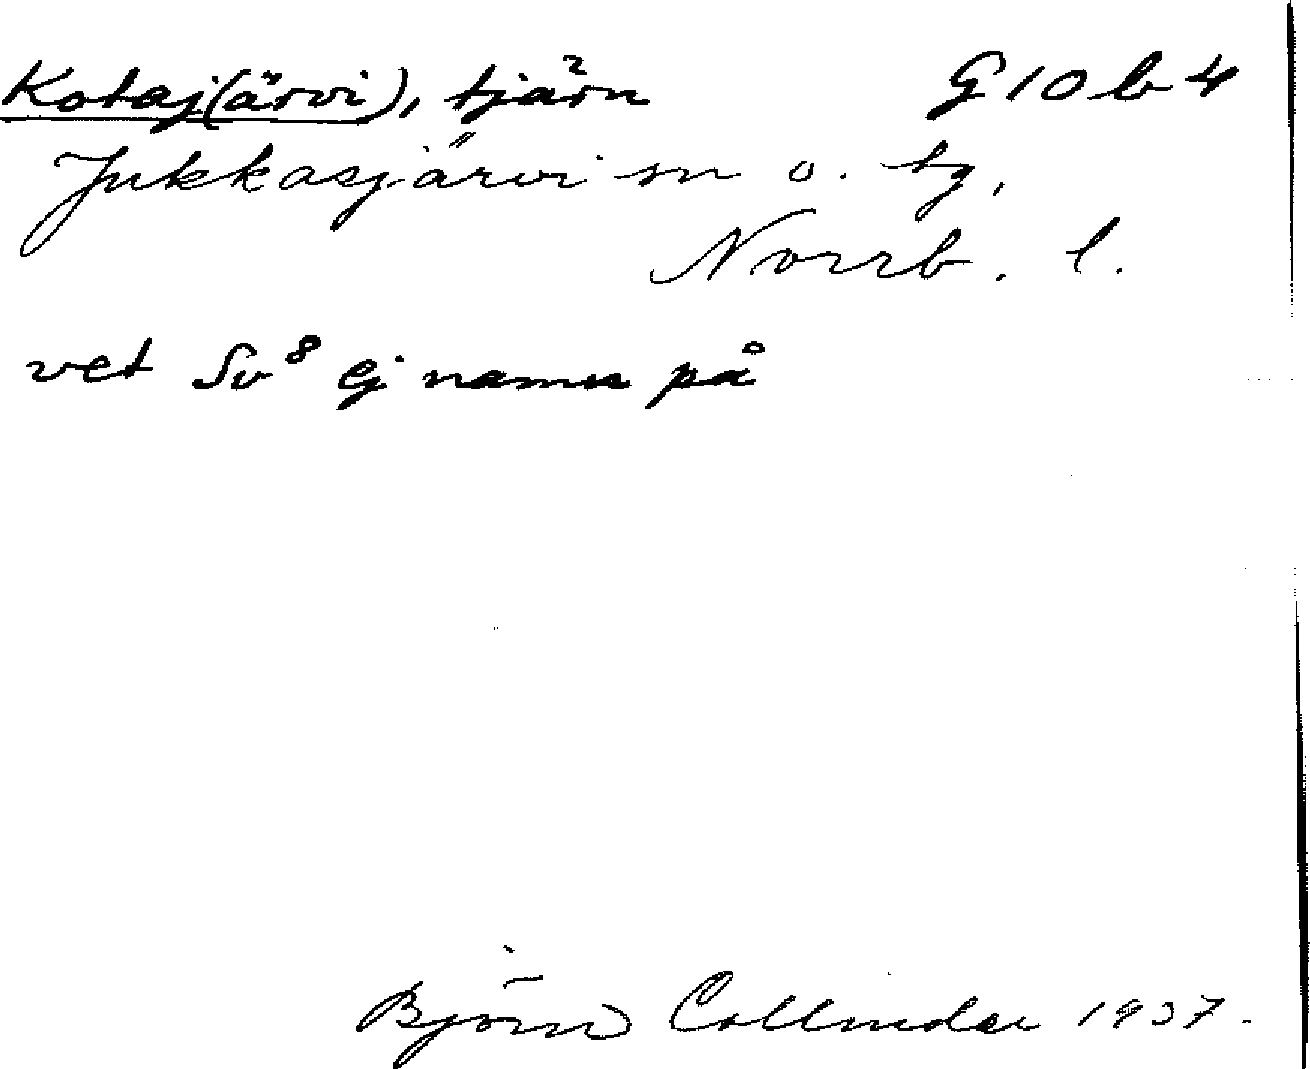 Kotaj(ärvi), tjärn G 10 b 4
Jukkasjärvi sn o. tg,
Norrb. l.
vet Sv⁸ ej namn på
Björn Collinder 1937.